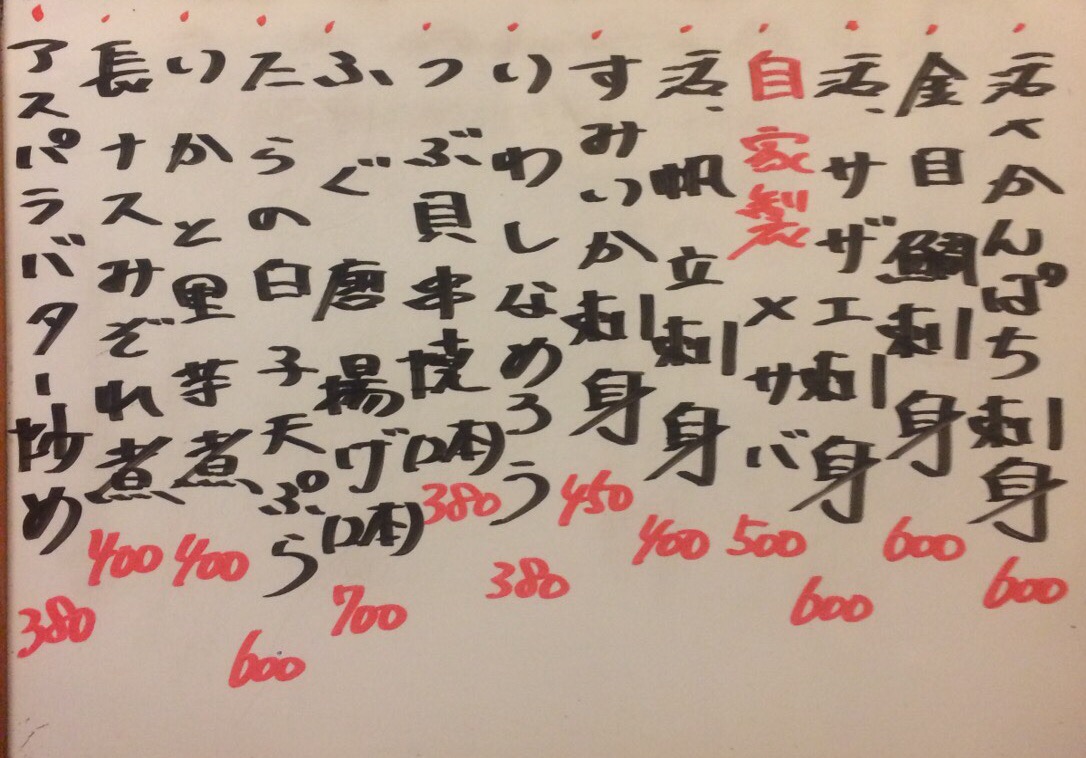 活〆かんぱち刺身 600
金目鯛刺身 600
活、サザエ刺身 600
自家製〆サバ 500
活、帆立刺身 400
すみいか刺身 450
いわしなめろう 380
つぶ貝串焼(2本) 380
ふぐ唐揚げ(2本) 700
たらの白子天ぷら 600
いかと里芋煮 400
長ナスみぞれ煮 400
アスパラバター炒め 380